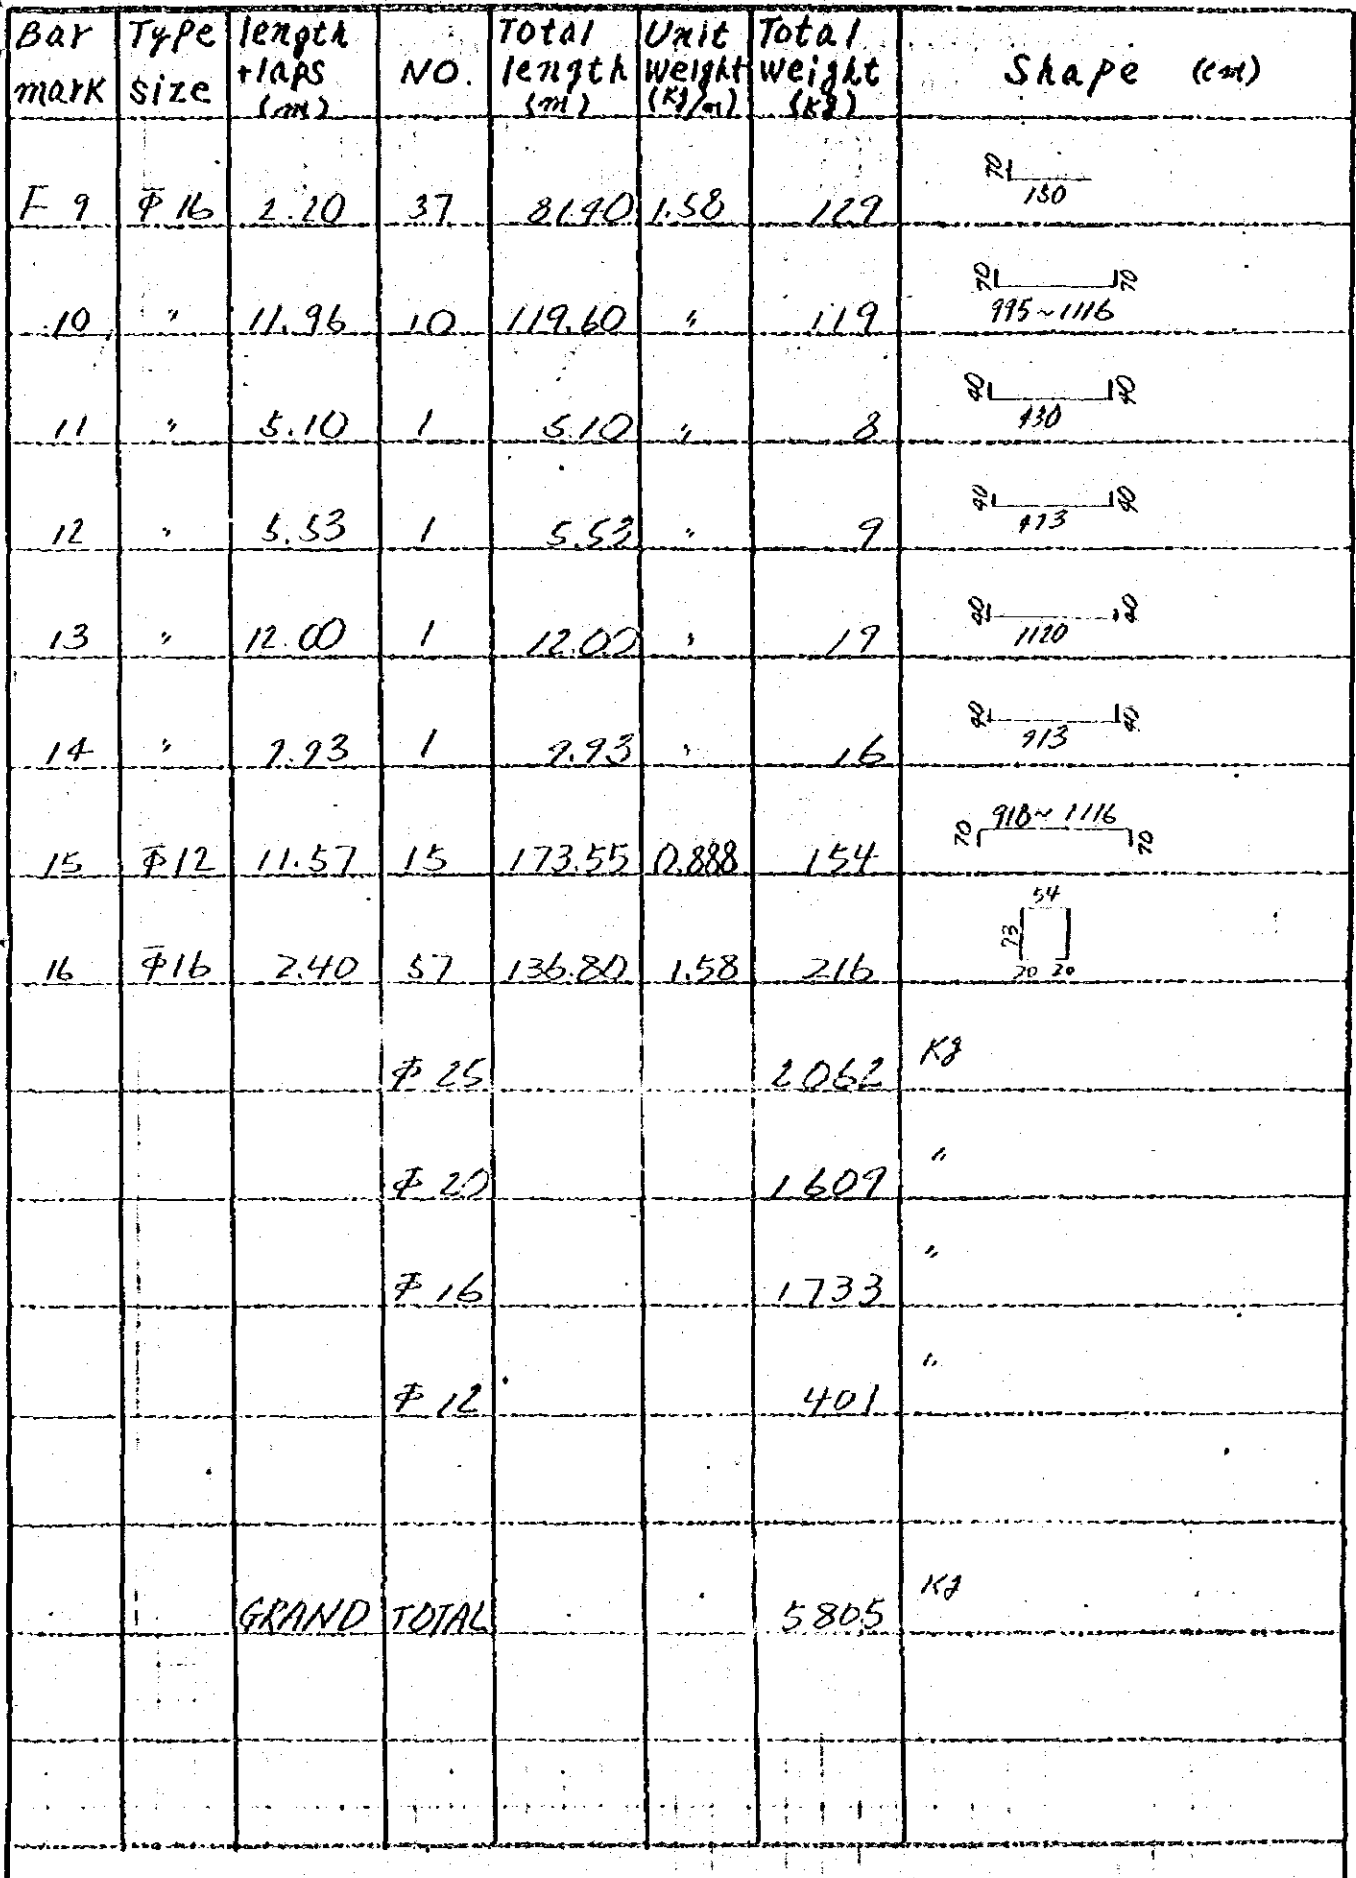 Bar mark Type size length +laps (m) NO. Total length (m) Unit weight (Kg/m) Total weight (Kg) Shape (cm)
F 9 Φ 16 2.20 37 81.40 1.58 129 70 150
10 " 11.96 10 119.60 " 119 70 995~1116 70
11 " 5.10 1 5.10 " 8 40 430 40
12 " 5.53 1 5.53 " 9 40 473 40
13 " 12.00 1 12.00 " 19 40 1120 40
14 " 9.93 1 9.93 " 16 40 913 40
15 Φ12 11.57 15 173.55 0.888 154 70 918~1116 70
16 Φ16 2.40 57 136.80 1.58 216 54 73 20 20
Φ 25 2062 Kg
Φ 20 1609 "
Φ 16 1733 "
Φ 12 401 "
GRAND TOTAL 5805 Kg